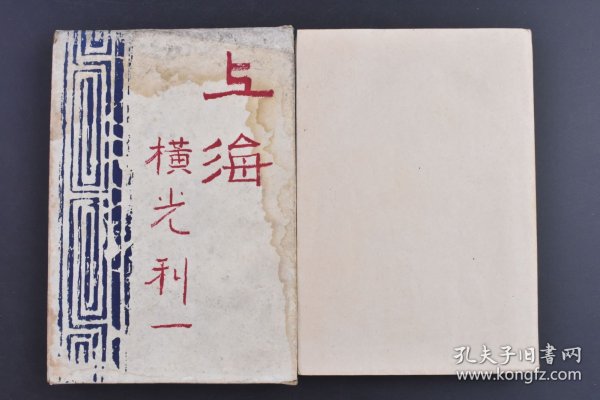 上海
横光利一
孔夫子旧書网
www.kongfz.com